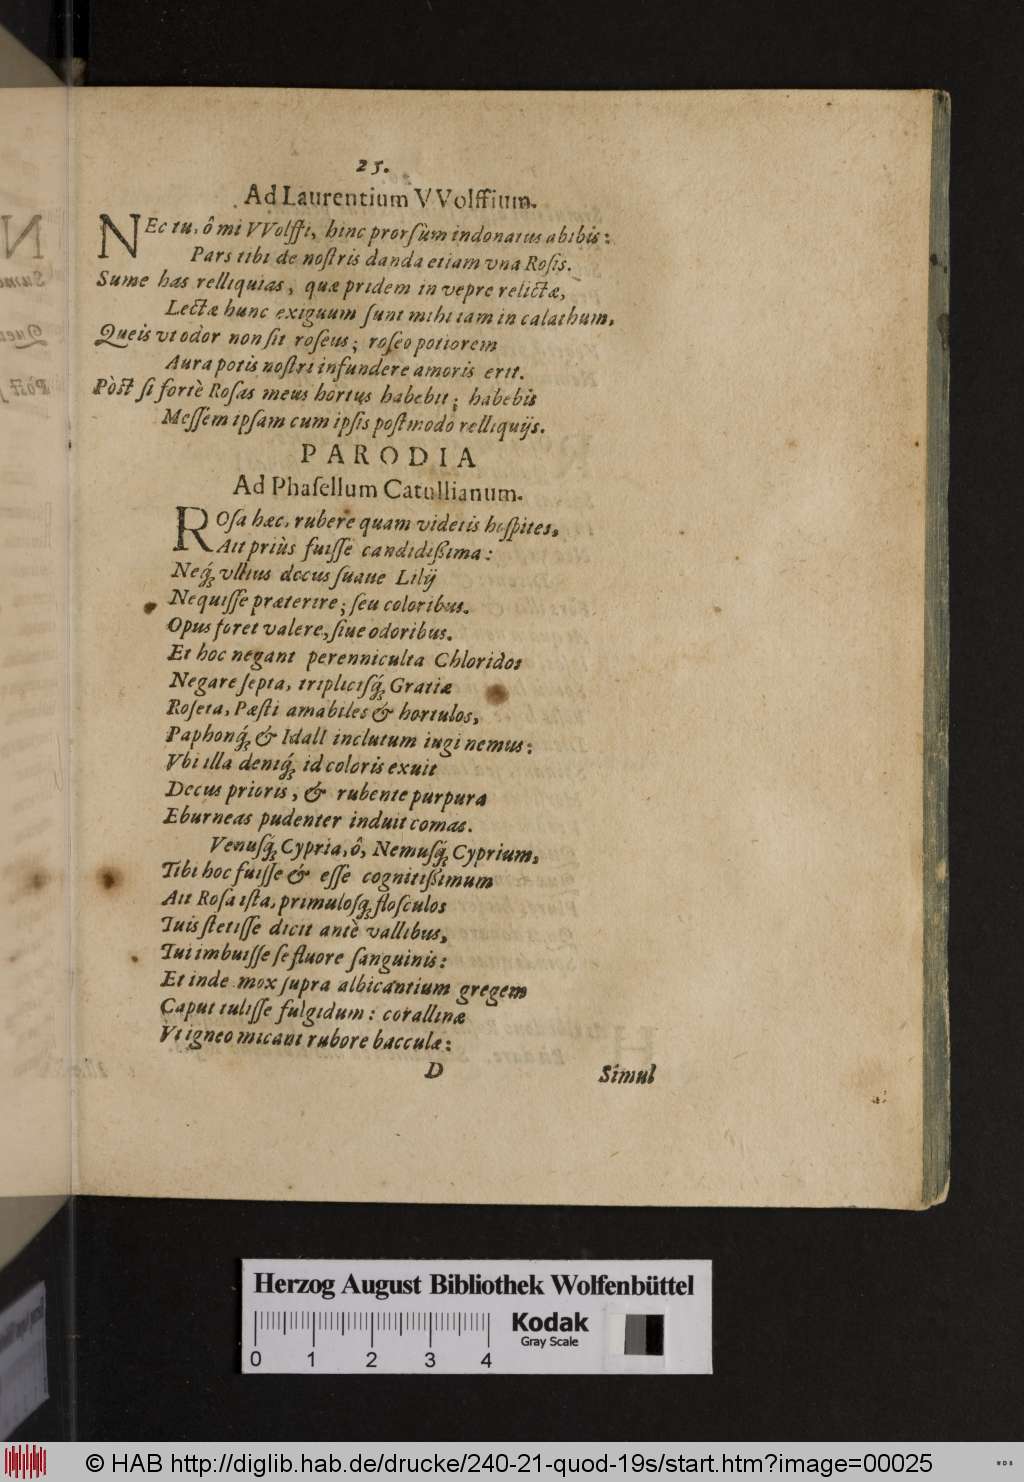 25.
Ad Laurentium VVolffium.
NEc tu, ô mi VVolffi, hinc prorſùm indonatus abibis:
Pars tibi de noſtris danda etiam vna Roſis.
Sume has relliquias, quæ pridem in vepre relictæ,
Lectæ hunc exiguum ſunt mihi iam in calathum,
Queis vt odor non ſit roſeus; roſeo potiorem
Aura potis noſtri infundere amoris erit.
Pòſt ſi fortè Roſas meus hortus habebit; habebis
Meſſem ipſam cum ipſis poſtmodò relliquijs.
PARODIA
Ad Phaſellum Catullianum.
ROſa hæc, rubere quam videtis hoſpites,
Ait priùs fuiſſe candidißima:
Neq́; vllius decus ſuaue Lilij
Nequiſſe præterire; ſeu coloribus.
Opus foret valere, ſiue odoribus.
Et hoc negant perenniculta Chloridos
Negare ſepta, triplicisq́; Gratiæ
Roſeta, Pæſti amabiles & hortulos,
Paphonq́; & Idalî inclutum iugi nemus:
Vbi illa deniq́; id coloris exuit
Decus prioris, & rubente purpura
Eburneas pudenter induit comas.
Venuſq́; Cypria, ô, Nemuſq́; Cyprium,
Tibi hoc fuiſſe & eſſe cognitißimum
Ait Roſa iſta, primuloſq́; floſculos
Tuis ſtetiſſe dicit antè vallibus,
Tui imbuiſſe ſe fluore ſanguinis:
Et inde mox ſupra albicantium gregem
Caput tuliſſe fulgidum: corallinæ
Vt igneo micant rubore bacculæ:
D
Simul
Herzog August Bibliothek Wolfenbüttel
0 1 2 3 4
Kodak
Gray Scale
© HAB http://diglib.hab.de/drucke/240-21-quod-19s/start.htm?image=00025